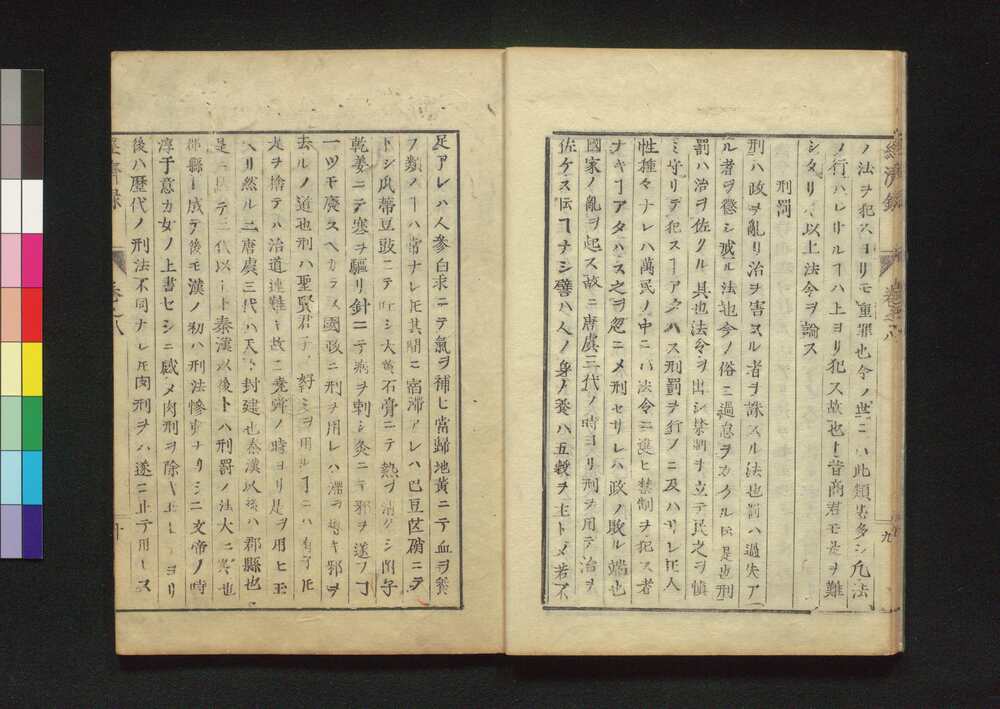 經濟録 卷之八 九
ノ法ヲ犯スヨリモ重罪也今ノ世ニハ此類甚多シ凡法
ノ行ハレサルヿハ上ヨリ犯ス故也ト昔商君モ是ヲ難
シタリ以上法令ヲ論ス
刑罰
刑ハ政ヲ亂リ治ヲ害スル者ヲ誅スル法也罰ハ過失ア
ル者ヲ懲シ戒ル法也今ノ俗ニ過怠ヲカクル氏是也刑
罰ハ治ヲ佐クル具也法令ヲ出シ禁制ヲ立テ民之ヲ愼
ミ守リテ犯スヿアラハス刑罰ヲ行フニ及ハサレ𪜈人
性種々ナレハ萬民ノ中ニハ法令ニ違ヒ禁制ヲ犯ス者
ナキヿアタハス之ヲ忽ニメ刑セサレハ政ノ敗ル端也
國家ノ亂ヲ起ス故ニ唐虞三代ノ時ヨリ刑ヲ用テ治ヲ
佐ケスト云ヿナシ譬ハ人ノ身ノ養ハ五穀ヲ主トメ若不
足アレハ人參白朮ニテ氣ヲ補ヒ當歸地黄ニテ血ヲ養
フ類ノヿハ常ナレ𪜈其間ニ宿滞アレハ巴豆芒硝ニテ
下シ瓜蔕豆豉ニテ吐シ大黄石膏ニテ熱ヲ清クシ附子
乾姜ニテ寒ヲ驅リ針ニテ病ヲ刺シ灸ニテ邪ヲ逐フヿ
一ツモ廢スヘカラス國政ニ刑ヲ用レハ滞ヲ導キ邪ヲ
去ルノ道也刑ハ聖賢君子ノ好ミヲ用ルヿニハ有子𪜈
是ヲ捨テハ治道連難キ故ニ堯舜ノ時ヨリ是ヲ用ヒ玉
ヘリ然ルニ唐虞三代ハ天下封建也秦漢以後ハ郡縣也
是ニ因テ三代以上ト秦漢以後トハ刑罰ノ法大ニ異也
郡縣ト成テ後モ漢ノ初ハ刑法慘東ナリシニ文帝ノ時
淳于意カ女ノ上書セシニ感メ肉刑ヲ除キ玉シヨリ
後ハ歴代ノ刑法不同ナレ𪜈肉刑ヲハ遂ニ止テ用ヒス
經濟録 卷之八 十